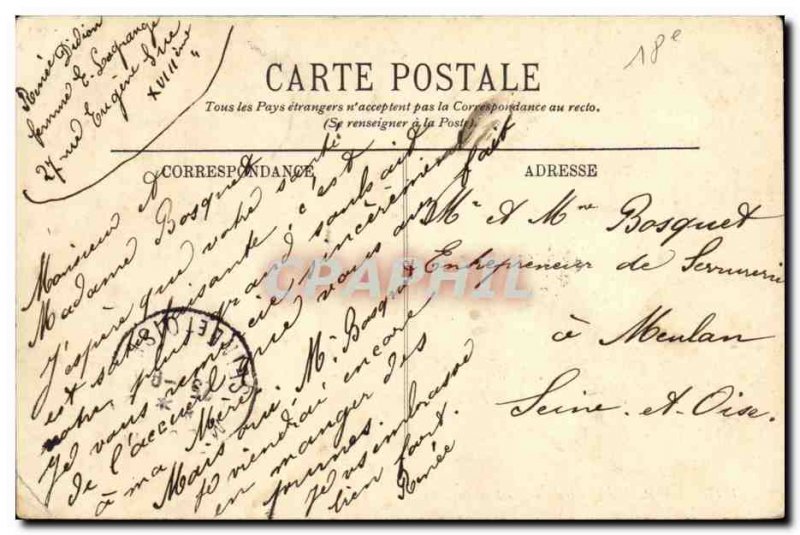 Renée Didion
femme E. Lagrange
27 rue Eugène Sue
XVIIIème
18e
CARTE POSTALE
Tous les Pays étrangers n'acceptent pas la Correspondance au recto.
(Se renseigner à la Poste).
CORRESPONDANCE
ADRESSE
Monsieur et
Madame Bosquet
J'espère que votre santé
est satisfaisante, c'est
notre plus grand souhait
Je vous remercie sincèrement
de l'accueil que vous avez fait
à ma Mère.
Mais oui Mr Bosquet
je viendrai encore
en manger des
prunes.
Je vs embrasse
bien fort.
Renée
Mr et Mme Bosquet
Entrepreneur de Serrurerie
à Meulan
Seine-et-Oise.
CPAPHIL